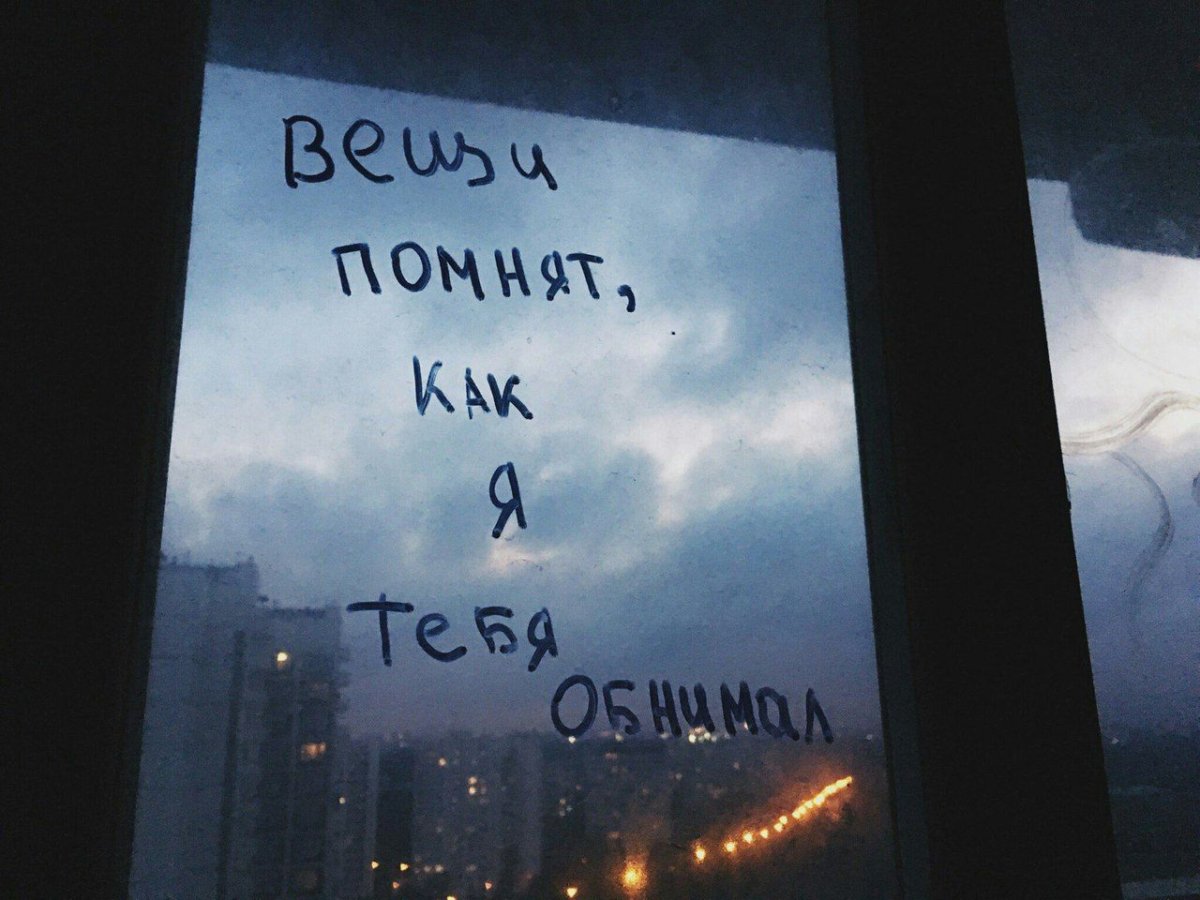 Вещи
помнят,
как
я
тебя
обнимал